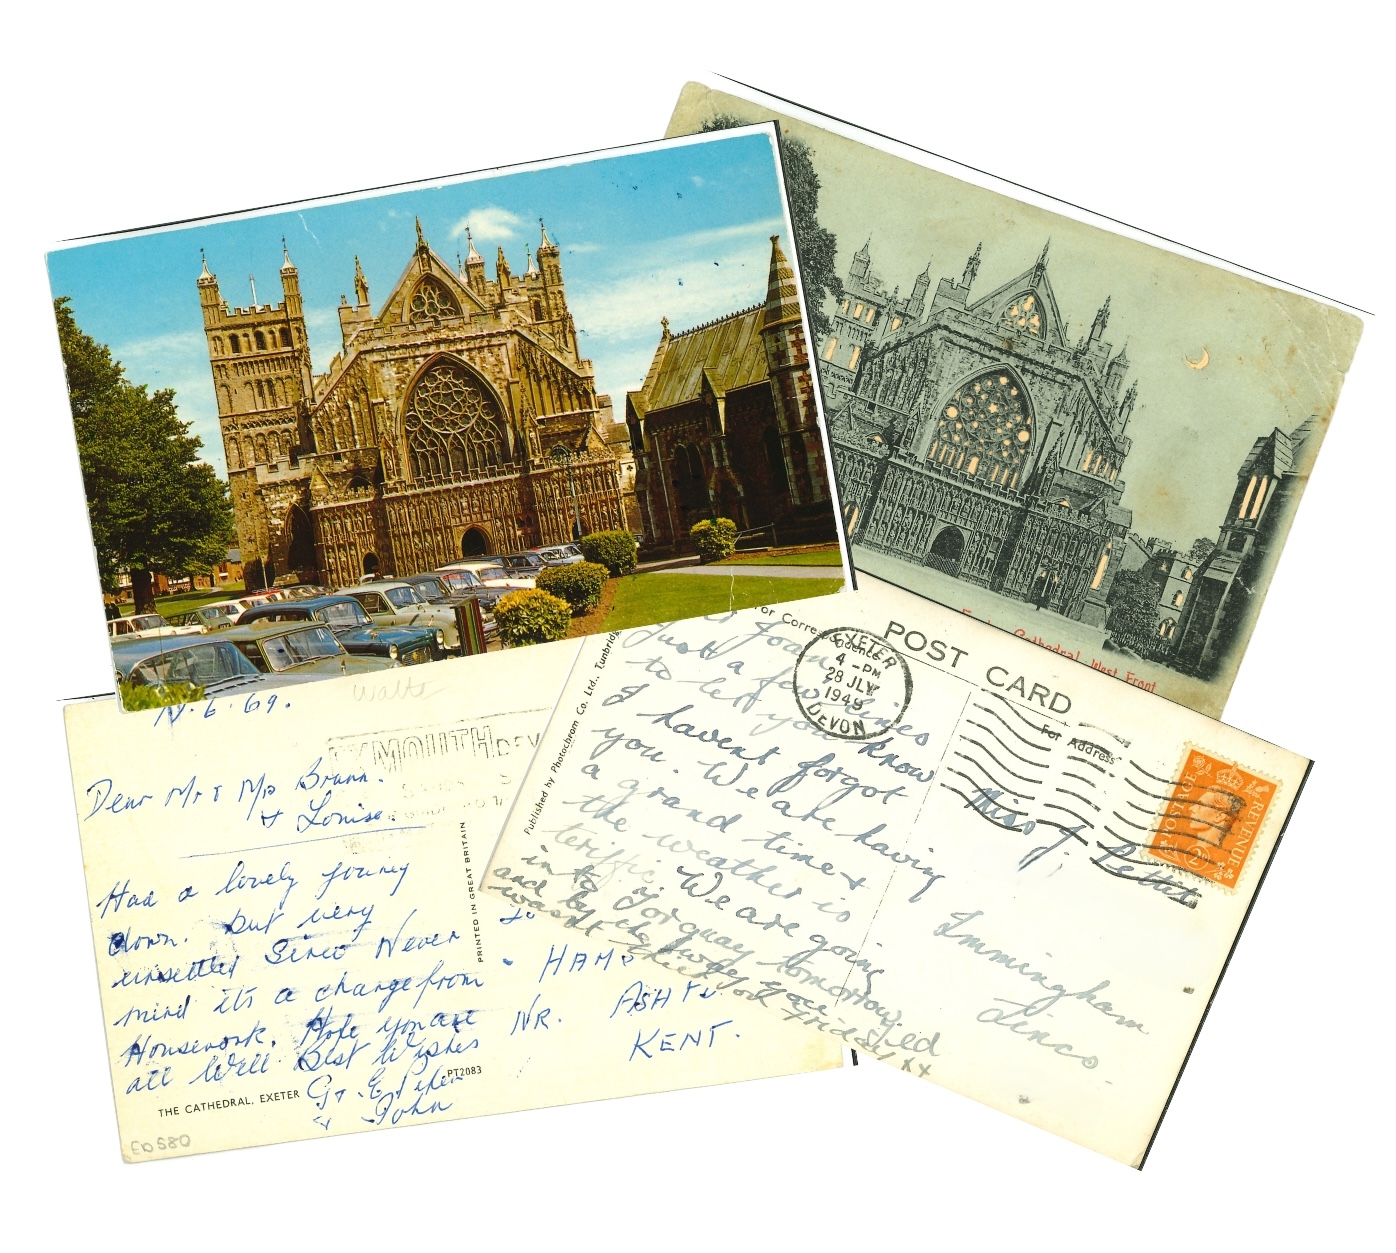 Exeter Cathedral, West Front
Walts
N.6.69.
YMOUTH DEV
Dear Mr & Mrs Brann.
& Louise
Had a lovely journey
down. but very
unsettled Since Never
mind it's a change from
Housework. Hope you are
all Well Best Wishes
John
THE CATHEDRAL, EXETER
PT2083
ED580
PRINTED IN GREAT BRITAIN
HAM
NR. ASH
KENT.
Published by Photochrom Co. Ltd., Tunbridg
For Correspondence
POST CARD
For Address
EXETER
4 -PM
28 JLY
1949
DEVON
Joan
Just a few lines
to let you know
I havent forgot
you. We are having
a grand time &
the weather is
teriffic. We are going
into Torquay tomorrow,
and by the way you
wasnt Friday xx
Miss J. Pettit
Immingham
Lincs
POSTAGE
REVENUE